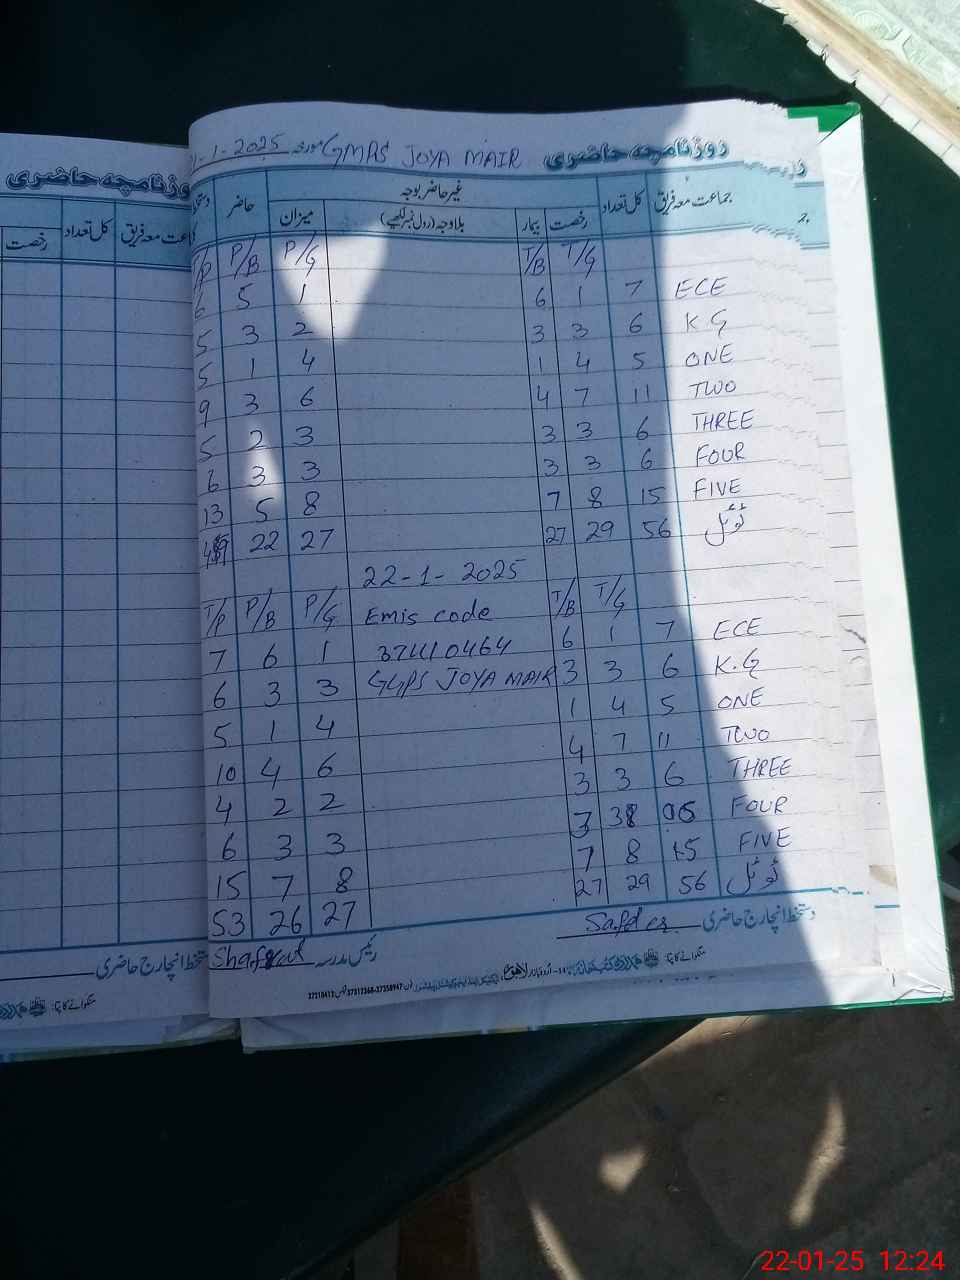 روزنامچہ حاضری GMPS JOYA MAIR مورخہ 21-1-2025
جماعت معہ فریق کل تعداد غیر حاضر بوجہ حاضر
رخصت بیمار بلاوجہ (رول نمبر لکھیے) میزان
T/G T/B P/G P/B T/P
ECE 7 1 6 1 5 6
K G 6 3 3 2 3 5
ONE 5 4 1 4 1 5
TWO 11 7 4 6 3 9
THREE 6 3 3 3 2 5
FOUR 6 3 3 3 3 6
FIVE 15 8 7 8 5 13
ٹوٹل 56 29 27 27 22
22-1-2025
T/G T/B Emis code P/G P/B T/P
ECE 7 1 6 37410464 1 6 7
K.G 6 3 3 GGPS JOYA MAIR 3 3 6
ONE 5 4 1 4 1 5
TWO 11 7 4 6 4 10
THREE 6 3 3 2 2 4
FOUR 06 3 3 3 3 6
FIVE 15 8 7 8 7 15
ٹوٹل 56 29 27 27 26 53
دستخط انچارج حاضری Safder رئیس مدرسہ
روزنامچہ حاضری
جماعت معہ فریق کل تعداد رخصت
دستخط انچارج حاضری
22-01-25 12:24